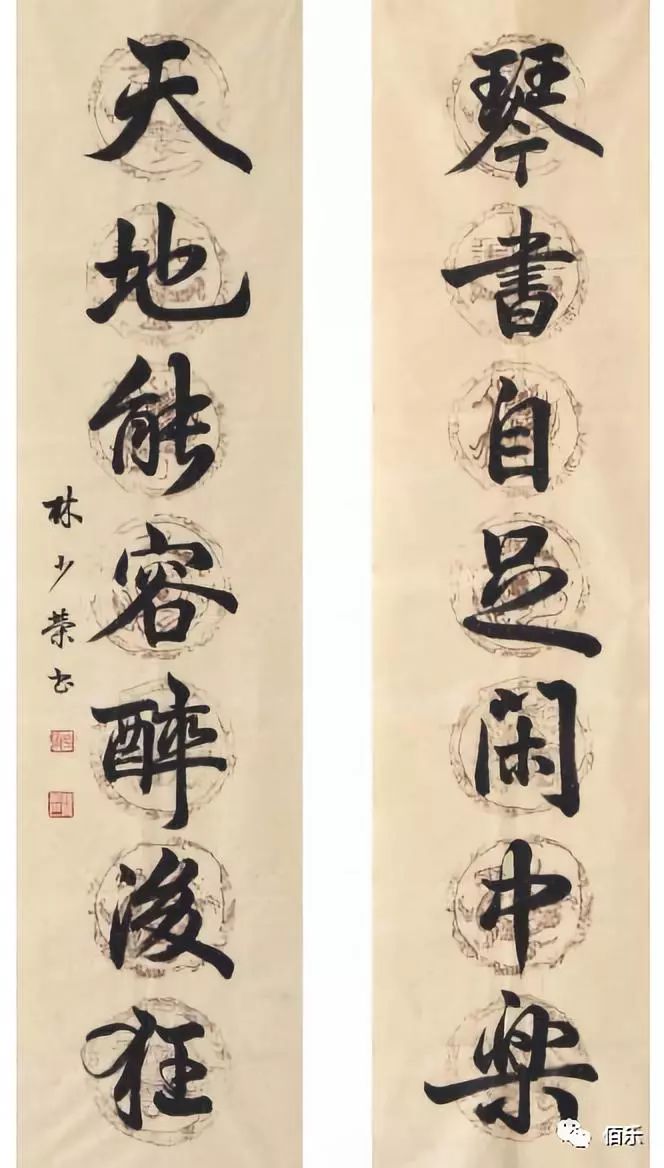 琴書自足闲中樂
天地能容醉後狂
林少荣书
佰乐